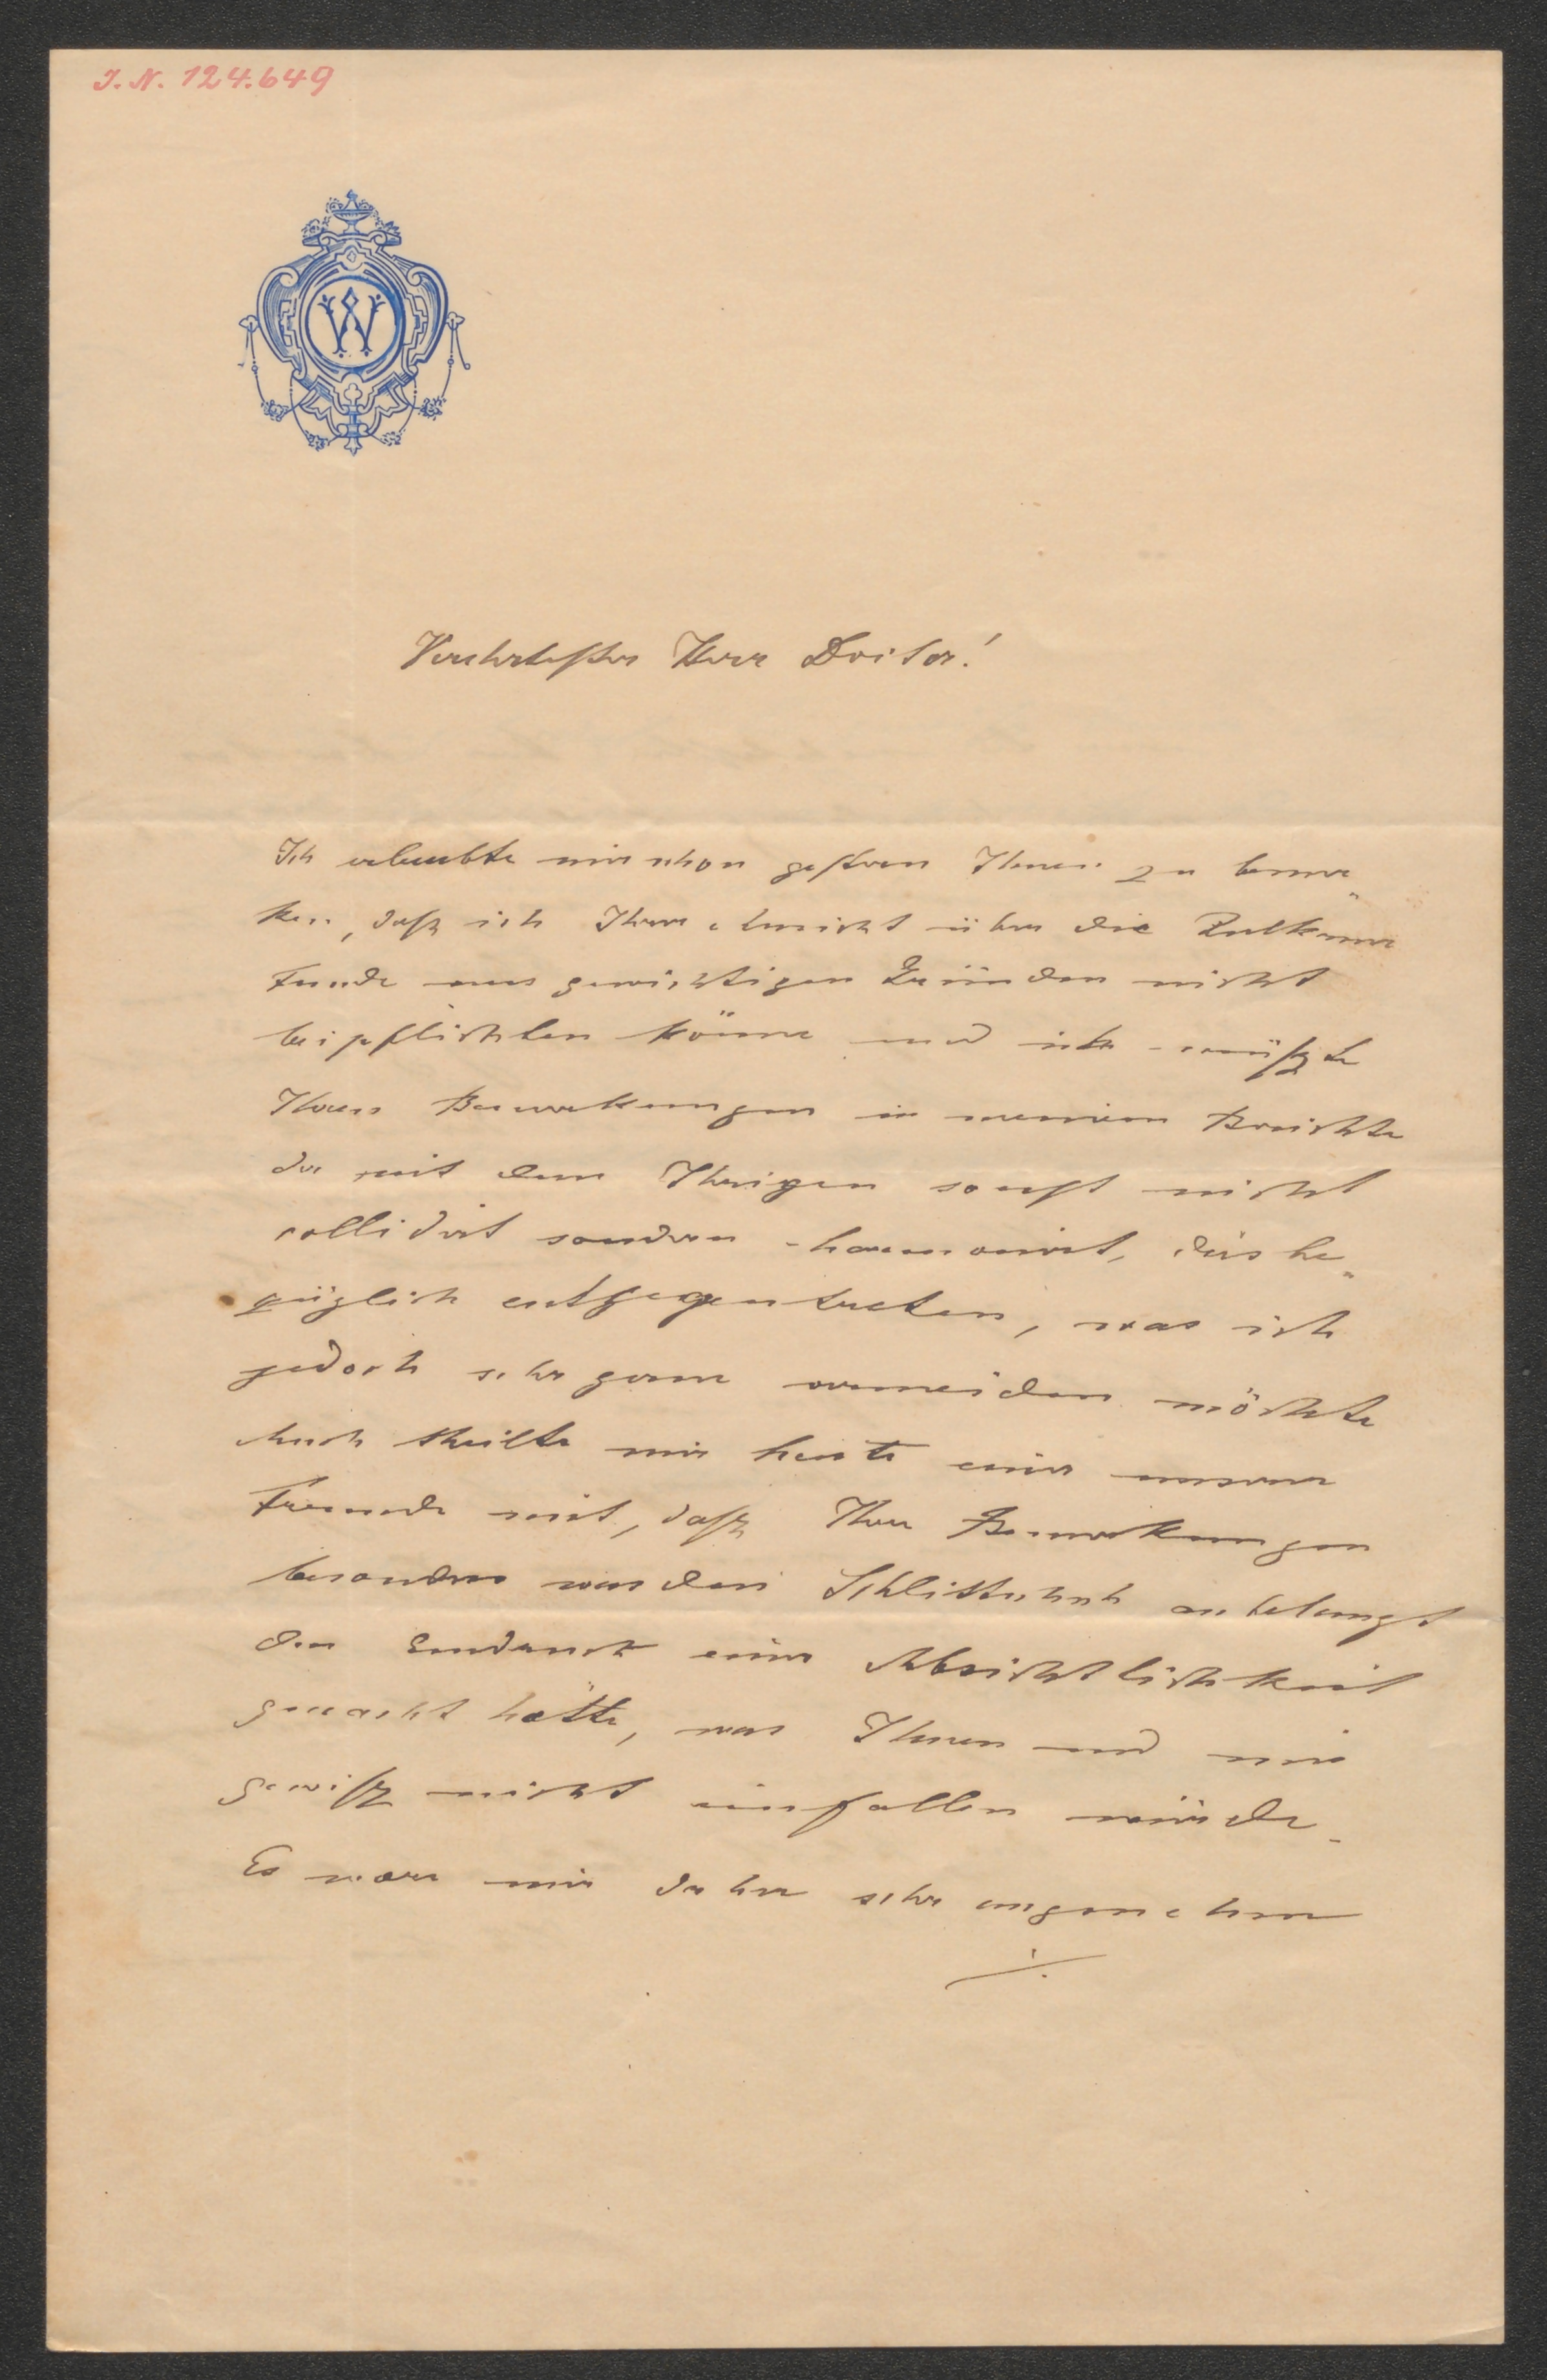 I.N. 124.649
W
Verehrtester Herr Doctor!
Ich erlaubte mir schon gestern Ihnen zu bemer„
ken, daß ich Ihrer Ansicht über die Pulkauer
Funde aus gewichtigen Gründen nicht
beipflichten könne und ich müßte
Ihren Bemerkungen in meinem Berichte
der mit dem Ihrigen sonst nicht
collidirt sondern harmonirt, diesbe„
züglich entgegentreten, was ich
jedoch sehr gerne vermeiden möchte
Auch theilte mir heute einer unserer
Freunde mit, daß Ihre Bemerkungen
besonders was den Schlittschuh anbelangt
den Eindruck einer Absichtlichkeit
gemacht hätte, was Ihnen und mir
gewiß nicht einfallen würde.
Es wäre mir daher sehr angenehm
./.